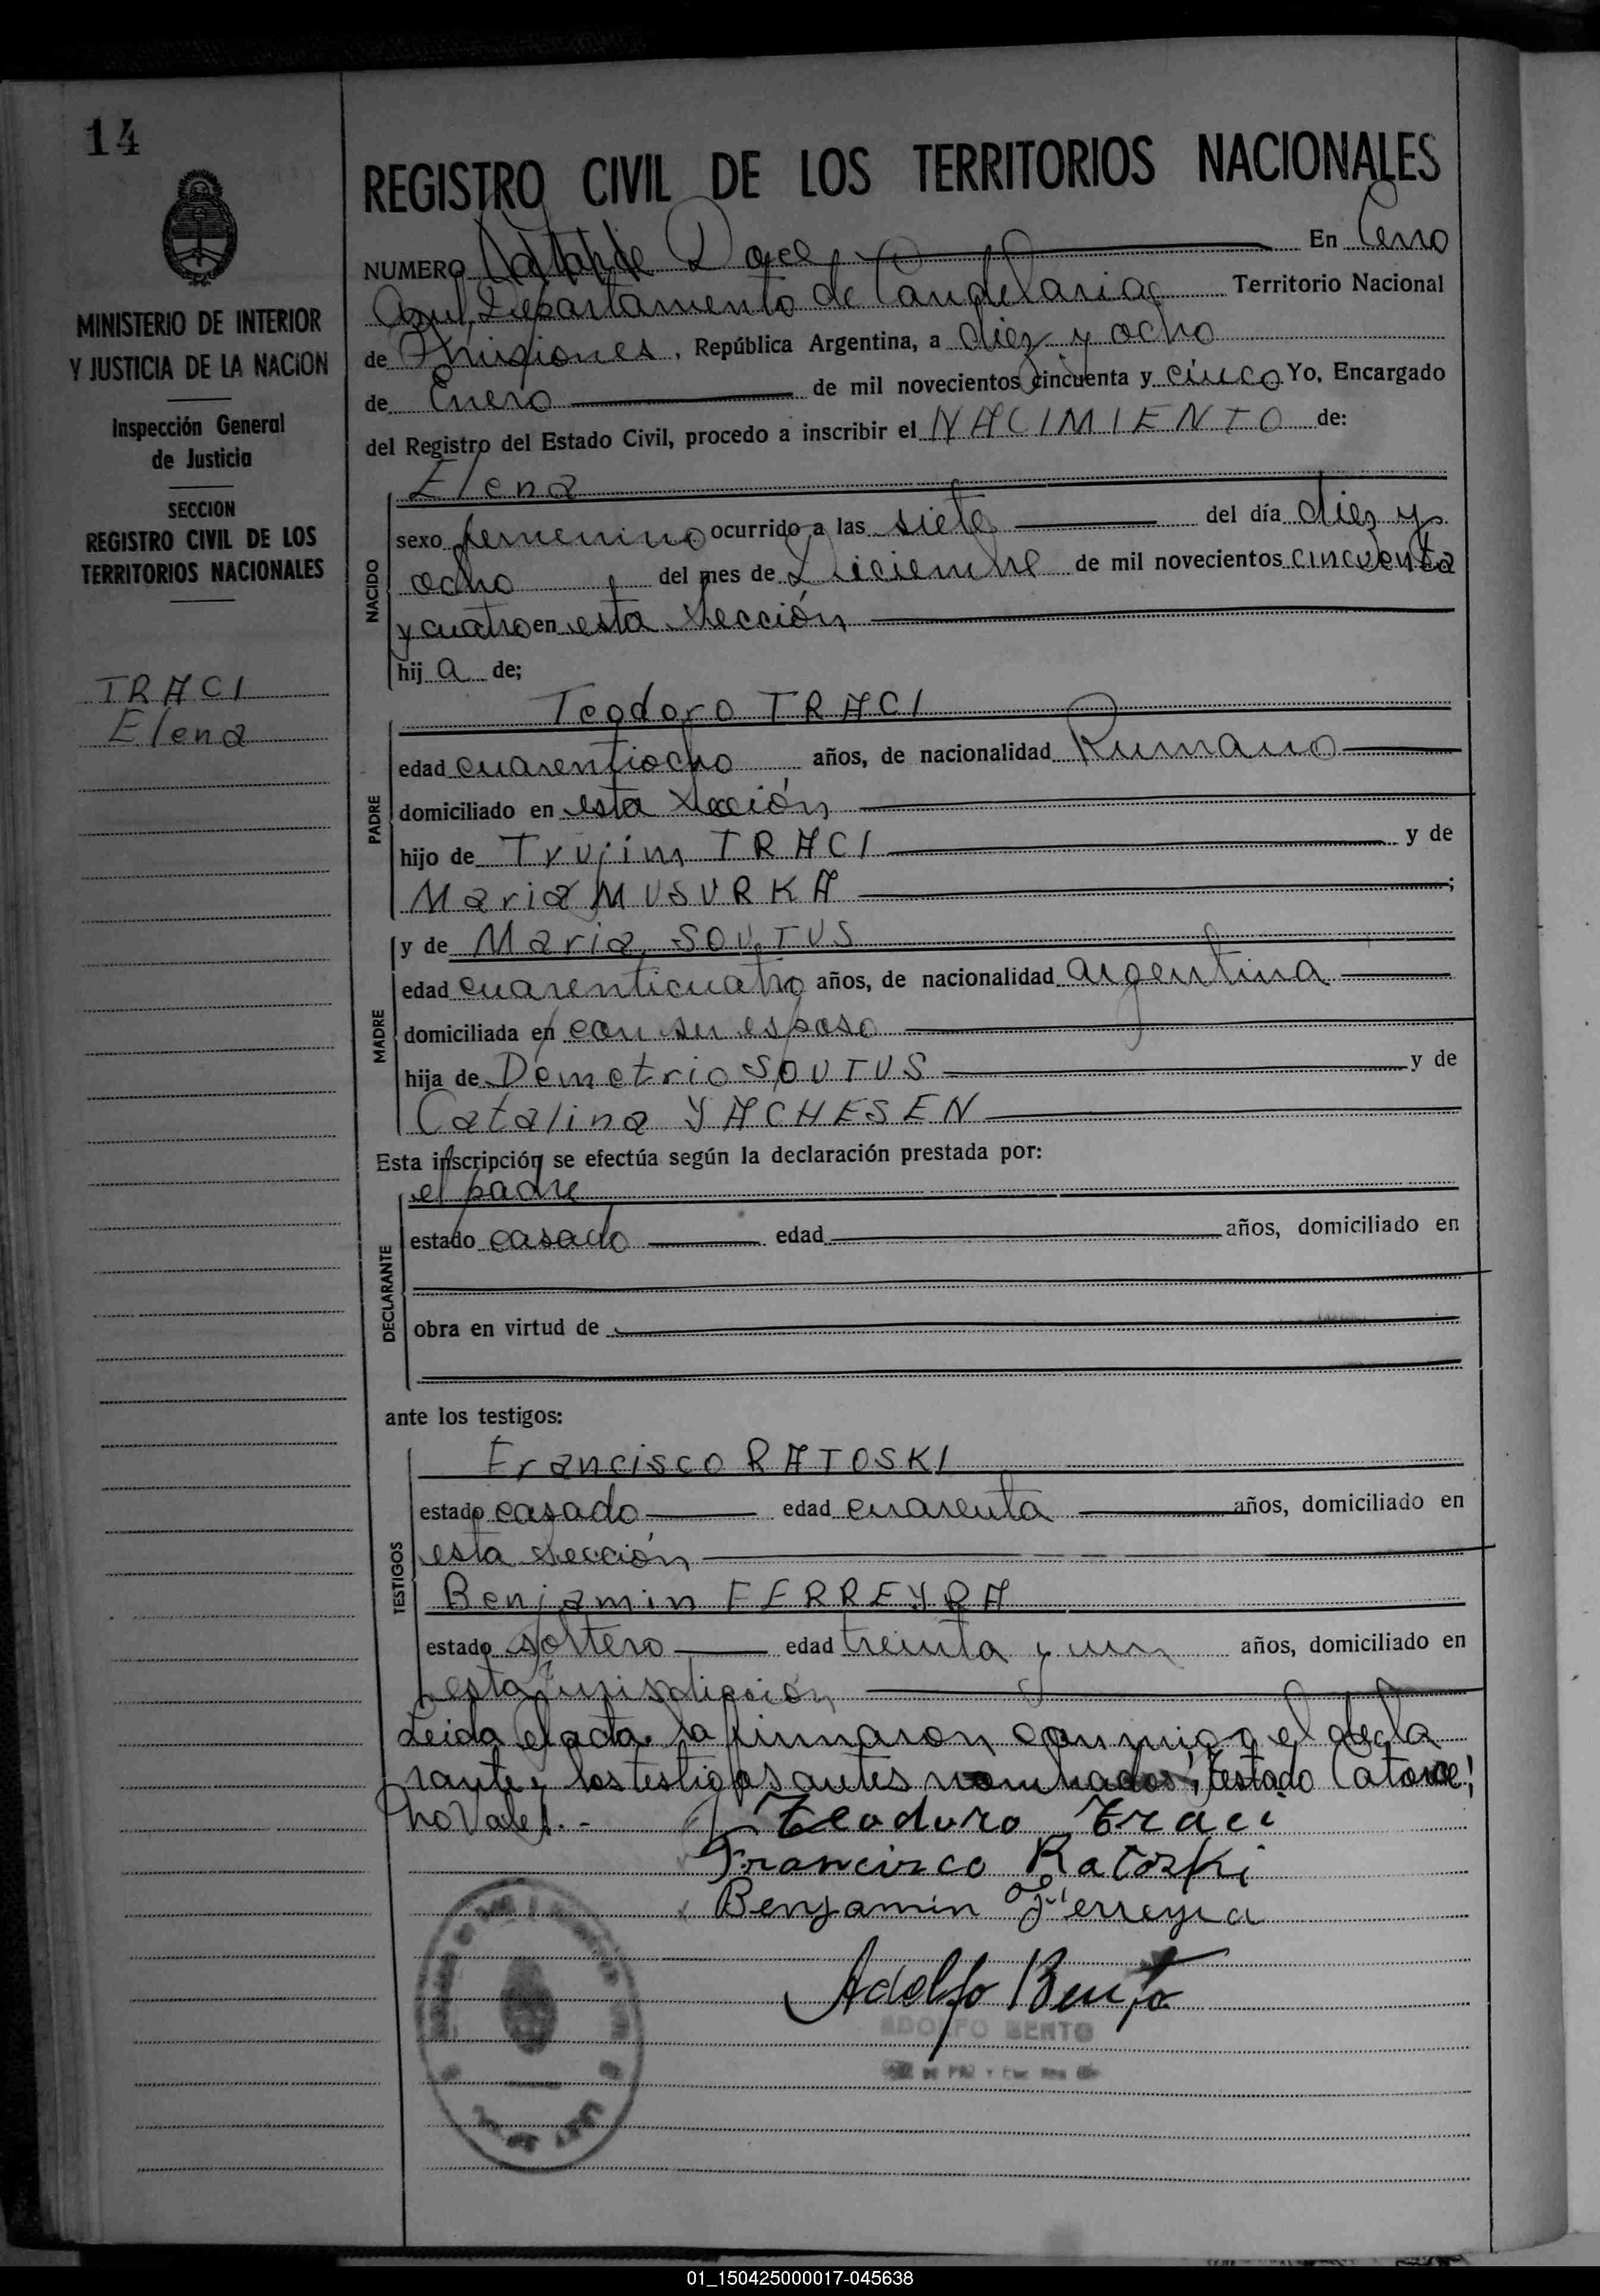 14
REGISTRO CIVIL DE LOS TERRITORIOS NACIONALES
MINISTERIO DE INTERIOR
Y JUSTICIA DE LA NACION
Inspección General
de Justicia
SECCION
REGISTRO CIVIL DE LOS
TERRITORIOS NACIONALES
TRACI
Elena
NUMERO Doce En Cerro
Azul, Departamento de Candelaria Territorio Nacional
de Misiones, República Argentina, a diez y ocho
de Enero de mil novecientos cincuenta y cinco Yo, Encargado
del Registro del Estado Civil, procedo a inscribir el NACIMIENTO de:
NACIDO
Elena
sexo femenino ocurrido a las siete del día diez y
ocho del mes de Diciembre de mil novecientos cincuenta
y cuatro en esta sección
hij a de;
PADRE
Teodoro TRACI
edad cuarentiocho años, de nacionalidad Rumano
domiciliado en esta sección
hijo de TRACI y de
Maria MUSURKA ;
MADRE
y de Maria SOUTUS
edad cuarenticuatro años, de nacionalidad argentina
domiciliada en con su esposo
hija de Demetrio SOUTUS y de
Catalina YACHESEN
Esta inscripción se efectúa según la declaración prestada por:
DECLARANTE
el padre
estado casado edad años, domiciliado en
obra en virtud de
ante los testigos:
TESTIGOS
Francisco RATOSKI
estado casado edad cuarenta años, domiciliado en
esta sección
Benjamin FERREYRA
estado soltero edad treinta y un años, domiciliado en
esta jurisdicción
Leida el acta. la firmaron conmigo el decla
rante y los testigos antes nombrados; testado Catorce;
no Vale.-
Teodoro Traci
Francisco Ratoski
Benjamin Ferreyra
Adolfo Bento
ADOLFO BENTO
01_150425000017-045638